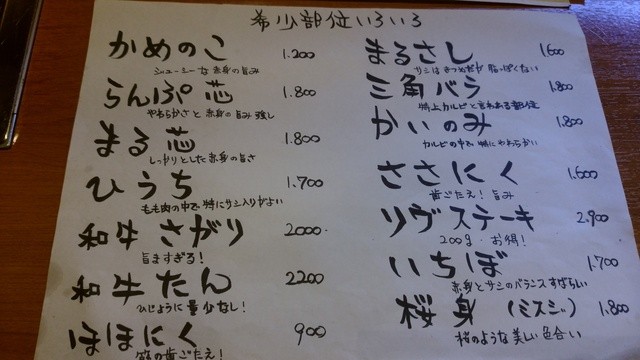 希少部位いろいろ
かめのこ 1.200
ジューシーな赤身の旨み
らんぷ芯 1.800
やわらかさと赤身の旨み強し
まる芯 1.800
しっかりとした赤身の旨さ
ひうち 1.700
もも肉の中で特にサシ入りがよい
和牛さがり 2000.
旨ますぎる!
和牛たん 2200
ひじょうに量少なし!
ほほにく 900
の歯ごたえ!
まるさし 1.600
サシはきつめだが脂っぽくない
三角バラ 1.800
特上カルビと言われる部位
かいのみ 1.800
カルビの中で特にやわらかい
ささにく 1.600
歯ごたえ!旨み
リヴステーキ 2.900
200g お得!
いちぼ 1.700
赤身とサシのバランスすばらしい
桜身(ミスジ) 1.800
桜のような美しい色合い